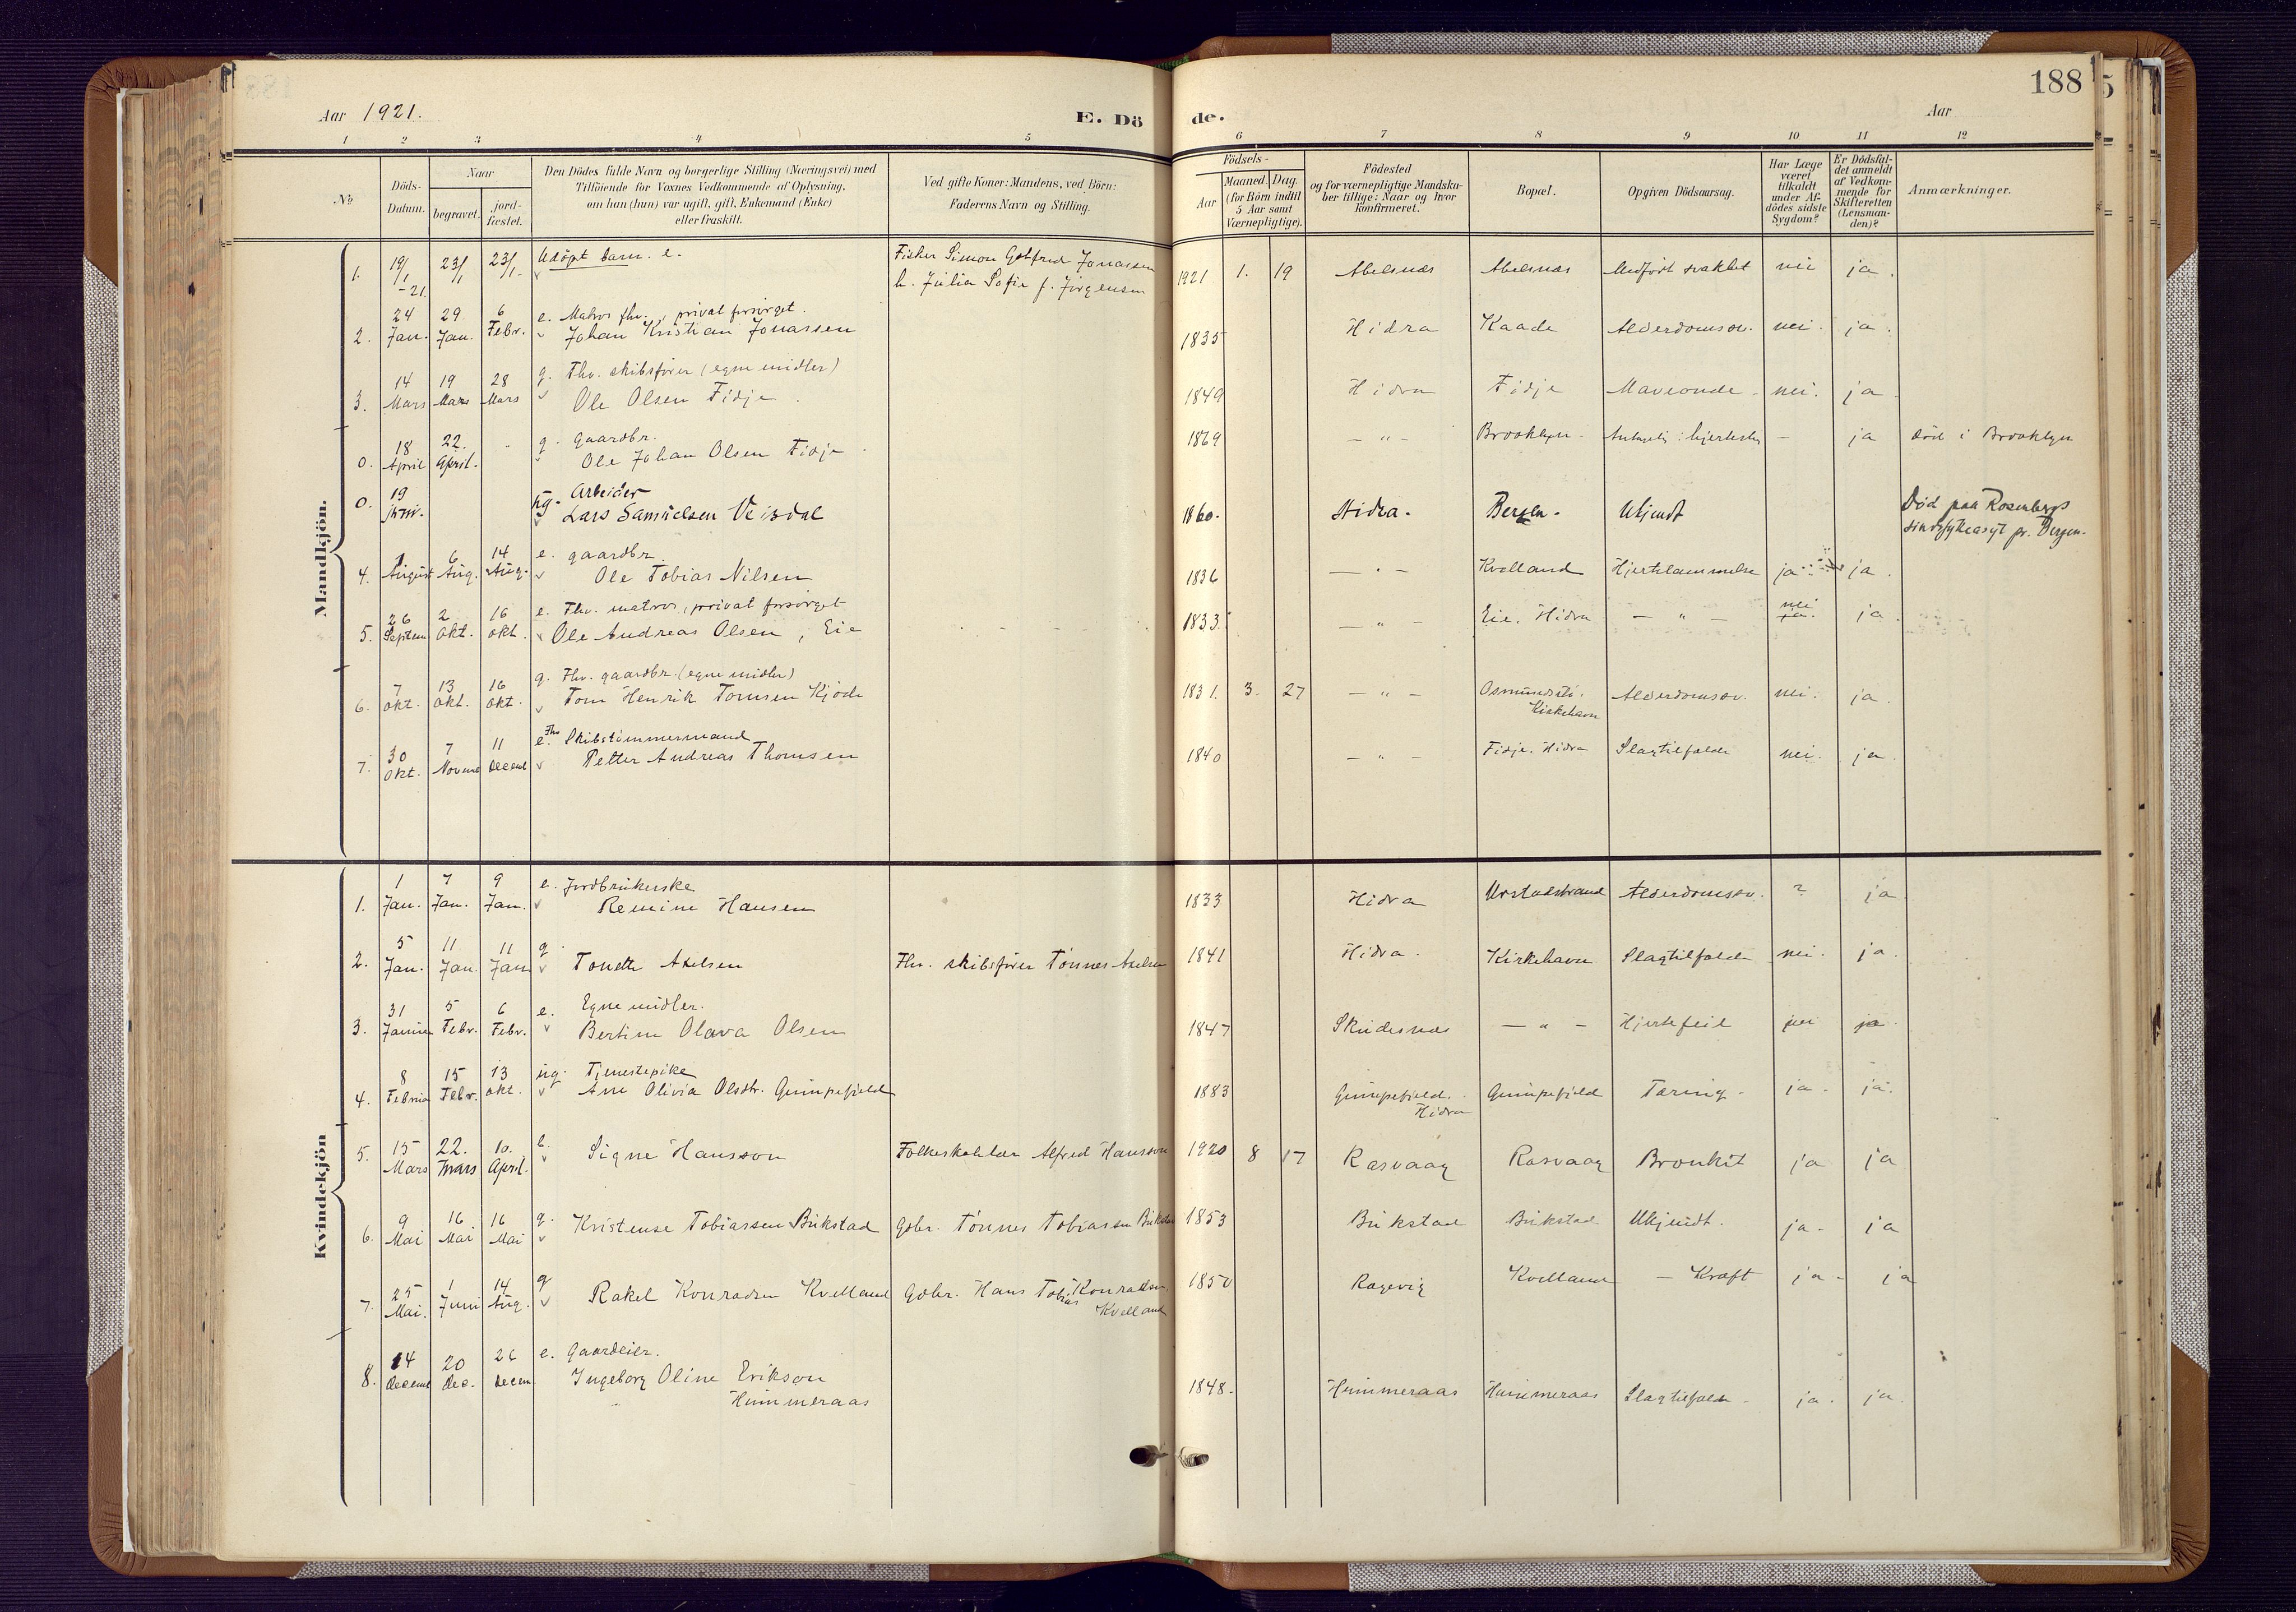 188
Aar 1921.
E. Dö de.
Aar
1 2 3 4 5 6 7 8 9 10 11 12
No
Döds-Datum.
Naar
begravet.
jord-fæstet.
Den Dödes fulde Navn og borgerlige Stilling (Næringsvei) med
Tilföiende for Voxnes Vedkommende af Oplysning,
om han (hun) var ugift, gift, Enkemand (Enke)
eller fraskilt.
Ved gifte Koner: Mandens, ved Börn:
Faderens Navn og Stilling.
Födsels-
Aar
Maaned. Dag.
(for Börn indtil
5 Aar samt
Værnepligtige).
Födested
og for værnepligtige Mandska-
ber tillige: Naar og hvor
konfirmeret.
Bopæl.
Opgiven Dödsaarsag.
Har Læge
været
tilkaldt
under Af-
dödes sidste
Sygdom?
Er Dödsfal-
det anmeldt
af Vedkom-
mende for
Skifteretten
(Lensman-
den)?
Anmærkninger.
Mandkjön.
1. 19/1 -21. 23/1 23/1- Udöpt barn. e. Fisker Simon Gotfred Jonassen
h. Julia Sofie f. Jörgensen 1921 1. 19 Abelsnæs Abelsnæs Medfödt svakhet nei ja.
2. 24 Jan. 29 Jan. 6 Febr. e. Matros fhv., privat forsörget.
Johan Kristian Jonassen 1835 Hidra Kaade Alderdomssv. nei. ja.
3. 14 Mars 19 Mars 28 Mars g. Fhv. skibsförer (egne midler)
Ole Olsen Fidje. 1849 Hidra Fidje Maveonde - nei. ja.
0. 18 April 22. April. g. gaardbr.
Ole Johan Olsen Fidje. 1869 - " - Brooklyn - - ja död i Brooklyn
0. 19 juni. ug. Arbeider
Lars Samuelsen Veisdal 1860. Hidra. Bergen. Ukjendt Död paa Rosenbergs
sindssykeasyl pr. Bergen.
4. 1 August 6 Aug. 14 Aug. e. gaardbr.
Ole Tobias Nilsen 1836 - " - Kvelland Hjertelammelse ja ja.
5. 26 Septem 2 Okt. 16 Okt. e. Fhv. matros, privat forsörget
Ole Andreas Olsen, Eie 1833. - " - Eie. Hidra - " - nei ja. ja.
6. 7 Okt. 13 Okt. 16 Okt. g. Fhv. gaardbr. (egne midler)
Tom Henrik Tomsen Kjöde 1831. 3. 27 - " - Kirkehavn Alderdomssv. nei. ja.
7. 30 Okt. 7 Novem 11 Decem e. Fhv. Skibstömmermand
Petter Andreas Thomsen 1840 - " - Fidje. Hidra Slagtilfælde nei. ja.
Kvindekjön
1. 1 Jan. 7 Jan. 9 Jan. e. Jordbrukerske
Remine Hansen 1833 Hidra Urstadstrand Alderdomssv. ? ja
2. 5 Jan. 11 Jan. 11 Jan g. Tonette Axelsen Fhv. skibsförer Tönnes Axelsen 1841 Hidra. Kirkehavn Slagtilfælde nei. ja.
3. 31 Januar 5 Febr. 6 Febr. e. Egne midler.
Bertine Olava Olsen 1847 Skudesnæs - " - Hjertefeil nei ja.
4. 8 Februar 15 Febr. 13 Okt. ug. Tjenestepike
Ane Olivia Olsdtr. Gumpefjeld 1883 Gumpefjeld. Hidra Gumpefjeld Tæring - ja. ja.
5. 15 Mars 22. Mars 10. April. b. Signe Hansson Folkeskolelær Alfred Hansson 1920 8 17 Rasvaag Rasvaag Bronkit ja ja
6. 9 Mai 16 Mai 16 Mai g. Kristense Tobiassen Bukstad Gbr. Tönnes Tobiassen Bukstad 1853 Bukstad Bukstad Ukjendt. ja. ja
7. 25 Mai. 1 Juni 14 Aug. g Rakel Konradsen Kvelland Gbr. Hans Tobias Konradsen
Kvelland 1850 Ragevig Kvelland - Kræft ja - ja
8. 14 Decem 20 Dec. 26 Decem e. Gaardeier.
Ingeborg Oline Erikson
Hummeraas 1848. Hummeraas Hummeraas Slagtilfælde - ja. ja.